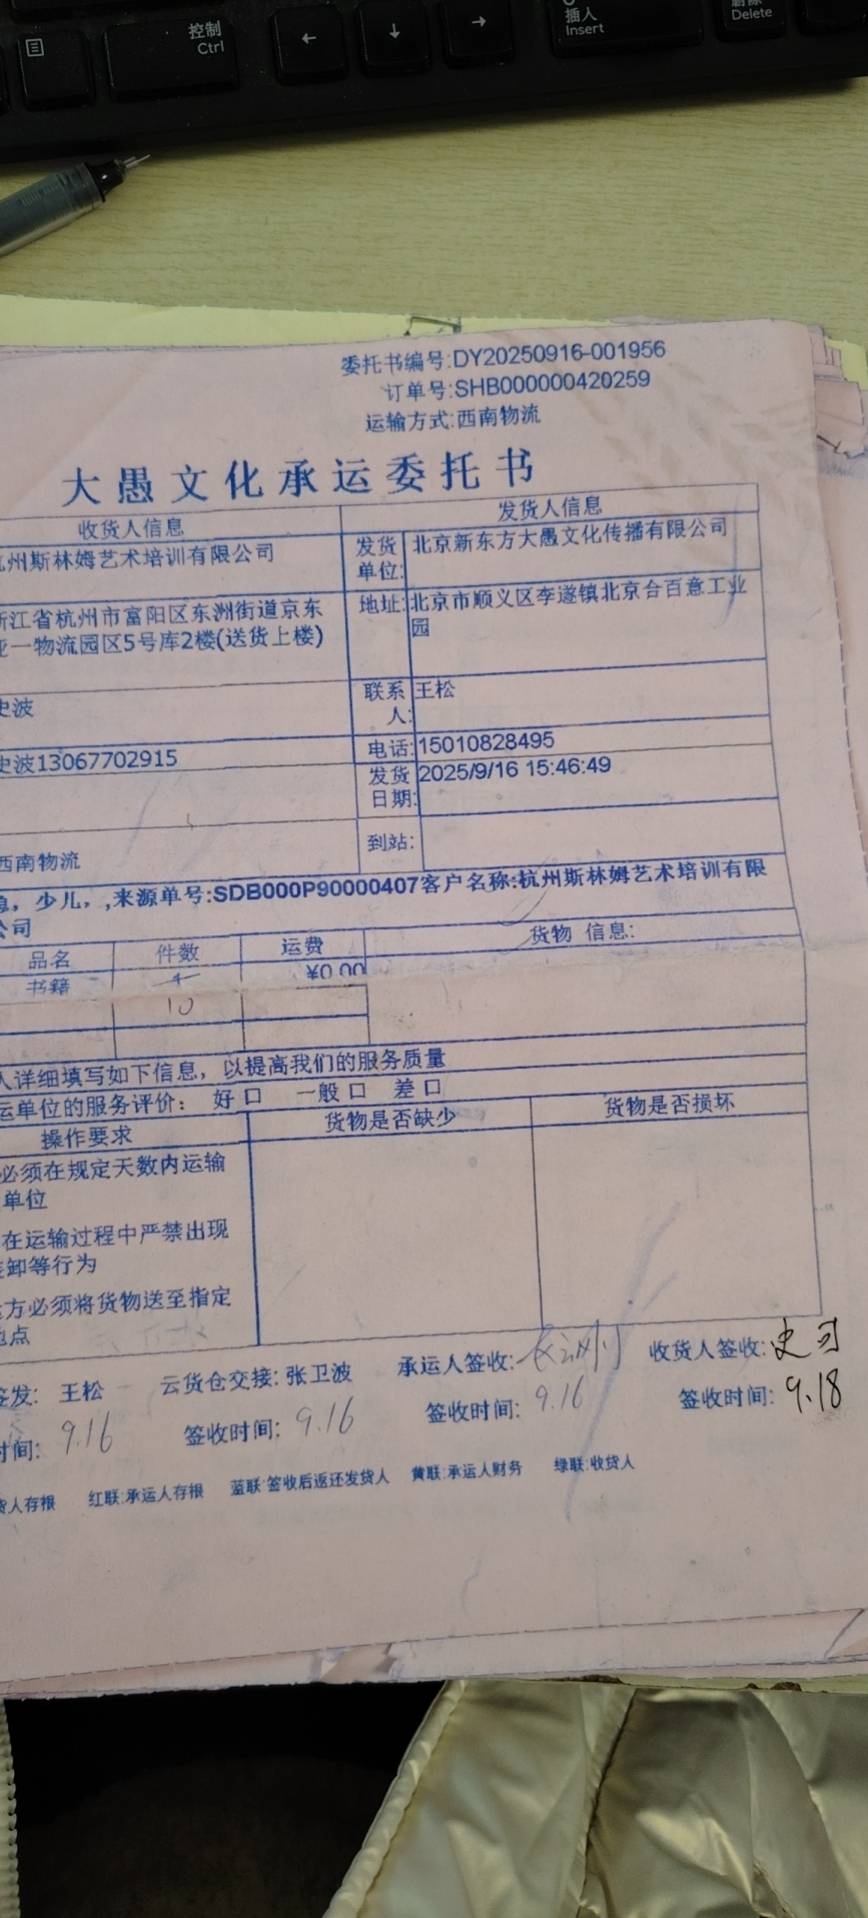 控制
Ctrl
←
↓
→
插入
Insert
Delete
委托书编号:DY20250916-001956
订单号:SHB000000420259
运输方式:西南物流
大愚文化承运委托书
收货人信息 发货人信息
州斯林姆艺术培训有限公司 发货单位: 北京新东方大愚文化传播有限公司
江省杭州市富阳区东洲街道京东 地址: 北京市顺义区李遂镇北京合百意工业
一物流园区5号库2楼(送货上楼) 园
史波 联系人: 王松
史波13067702915 电话: 15010828495
发货日期: 2025/9/16 15:46:49
西南物流 到站:
,少儿,,来源单号:SDB000P90000407客户名称:杭州斯林姆艺术培训有限
公司
品名 件数 运费 货物 信息:
书籍 ¥0.00
10
人详细填写如下信息,以提高我们的服务质量
运单位的服务评价: 好口 一般口 差口
操作要求 货物是否缺少 货物是否损坏
必须在规定天数内运输
单位
在运输过程中严禁出现
卸等行为
方必须将货物送至指定
地点
签发: 王松 云货仓交接: 张卫波 承运人签收: 收货人签收: 史
时间: 9.16 签收时间: 9.16 签收时间: 9.16 签收时间: 9.18
货人存根 红联:承运人存根 蓝联:签收后返还发货人 黄联:承运人财务 绿联:收货人